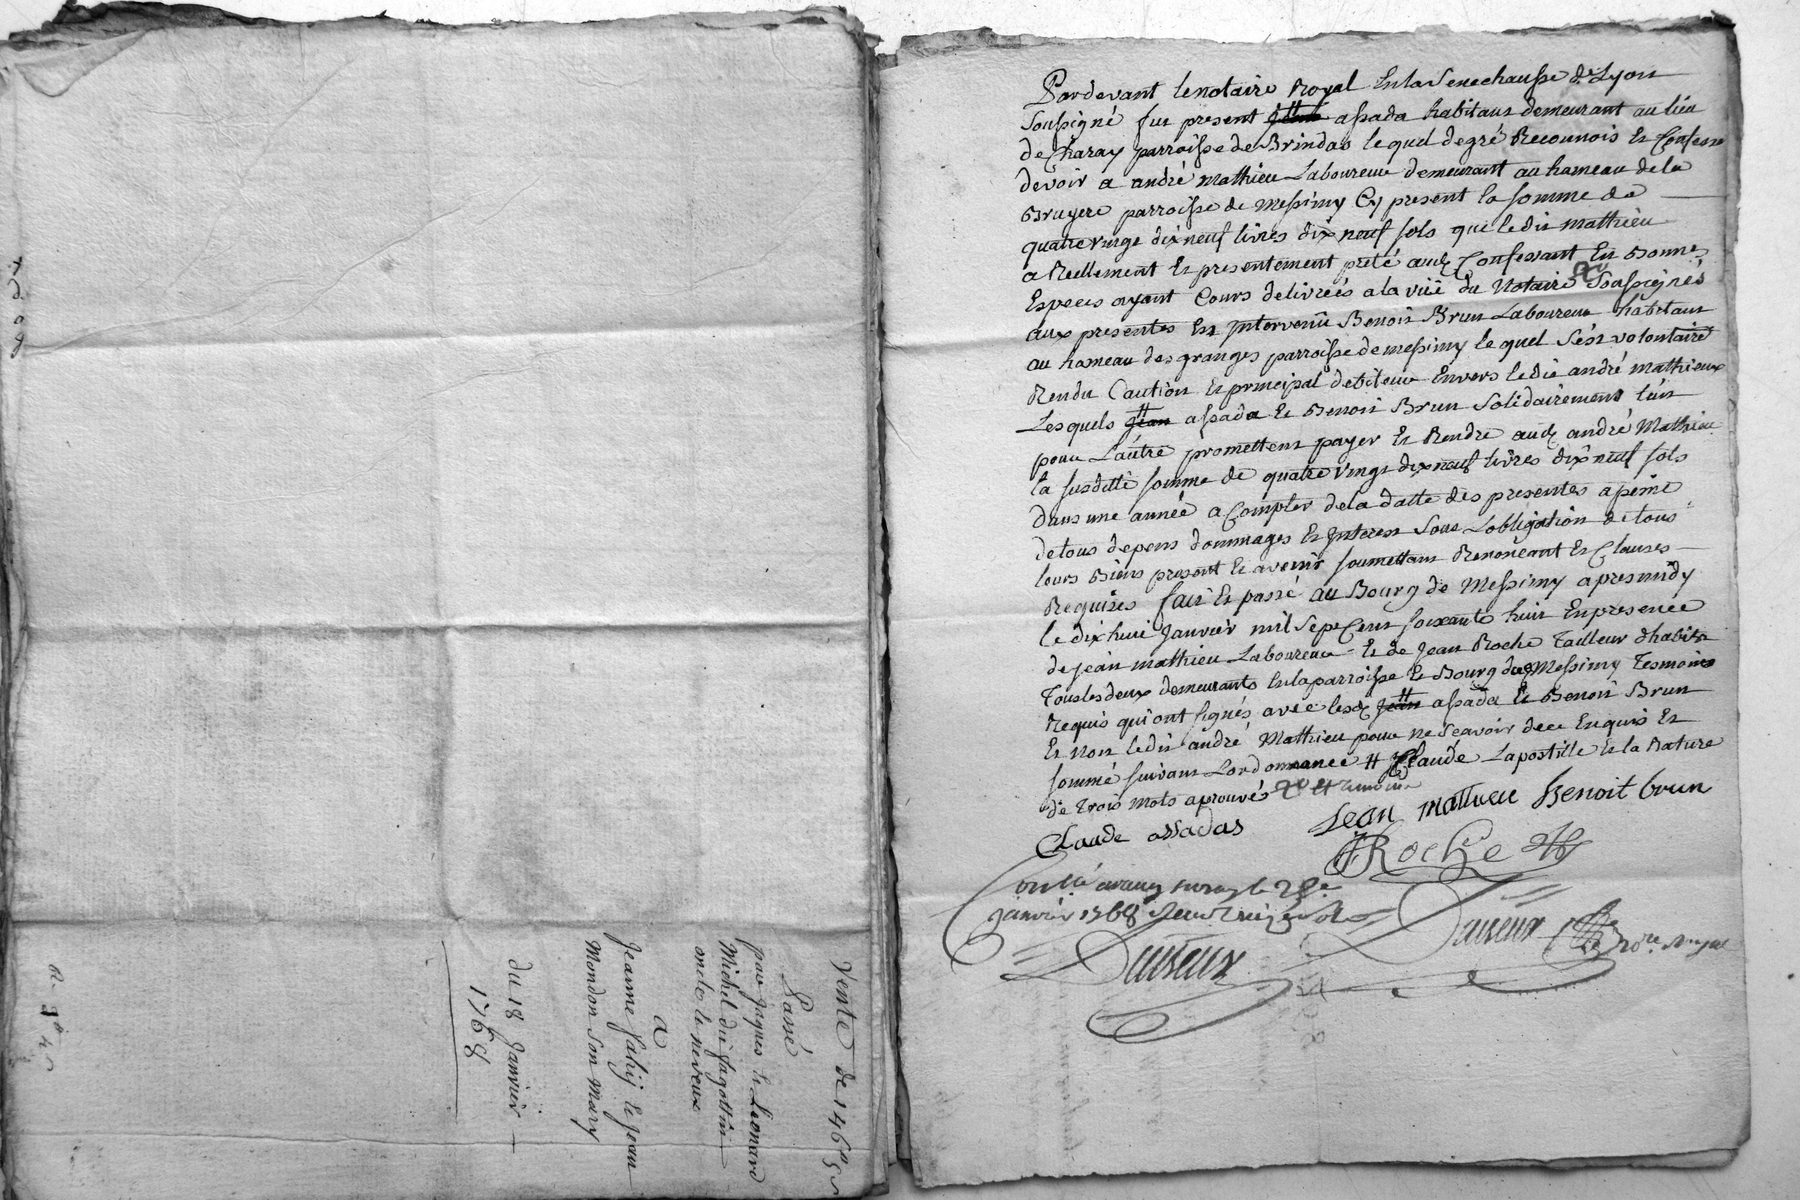 Vente de 146 £ 5 s
Passé
par jaques et Leonard
Michel dit fagottin
oncle le neveux
a
Jeanne faly et jean
Mondon son mary
du 18 Janvier
1768
Pardevant le notaire Royal En la Senechaussée de Lyon
Soussigné fut present jean assada habitant demeurant au lieu
de Charay parroisse de Brindas le quel de gré Reconnois Et Confesse
devoir a andré Mathieu Laboureur demeurant au hameau de la
Bruyere parroisse de Messimy Cy present la somme de
quatre vingt dix neuf livres dix neuf sols que ledit Mathieu
a Reellement Et presentement preté aud Confessant En Bonnes
Especes ayant Cours delivreés a la vüe du Notaire Soussignés
aux presentes Est Intervenü Benoit Brun Laboureur habitant
au hameau des granges parroisse de messimy le quel S'est volontaire
Rendu Caution Et principal debiteur Envers ledit andré mathieux
Les quels jean assada Et Benoit Brun Solidairement l'ün
pour L'autre promettent payer Et Rendre aud andré Mathieu
la susditte somme de quatre vingt dix neuf livres dix neuf sols
dans une année a Compter de la datte des presentes a peine
de tous depens dommages Et Interest Sous Lobligation de tous
leurs Biens present Et avenir soumettant Renonceant Et Clauses
Requises fait Et passé au Bourg de Messimy apres midy
le dix huit Janvier mil Sept Cent soixante huit En presence
de jean mathieu Laboureur Et de Jean Roche Tailleur dhabits
Tous les deux demeurants En la parroisse Et Bourg de Messimy Tesmoins
Requis qui ont signés avec lesd jean assada Et Benoit Brun
Et non ledit andré Mathieu pour ne Scavoir de ce Enquis Et
sommé suivant Lordonnance # Claude Lapostille Et la Rature
de trois mots aprouvés
Claude assadas Jean mathieu Benoit brun
JRoche
janvier 1768